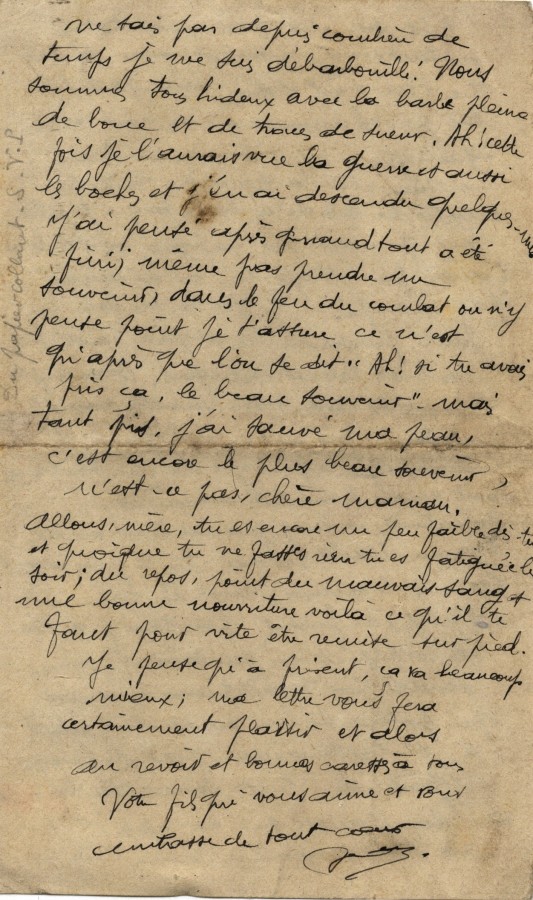 ne sais pas depuis combien de
temps je me suis débarbouillé! Nous
sommes tous hideux avec la barbe pleine
de boue et de traces de sueur. Ah! cette
fois je l'aurais vue la guerre et aussi
les boches et j'en ai descendu quelques-uns
j'ai pensé après quand tout a été
fini, même pas prendre un
souvenir, dans le feu du combat on n'y
pense point je t'assure ce n'est
qu'après que l'on se dit "Ah! si tu avais
pris ça, le beau souvenir" - mais
tant pis, j'ai sauvé ma peau,
c'est encore le plus beau souvenir,
n'est-ce pas, chère maman.
Allons, mère, tu es encore un peu faible dis-tu
et quoique tu ne fasses rien tu es fatiguée le
soir; du repos, point du mauvais sang +
une bonne nourriture voilà ce qu'il te
faut pour vite être remise sur pied.
Je pense qu'à présent, ça va beaucoup
mieux; ma lettre vous fera
certainement plaisir et alors
au revoir et bonnes caresses à tous
Votre fils qui vous aime et vous
embrasse de tout coeur
Du papier collant - S.V.P